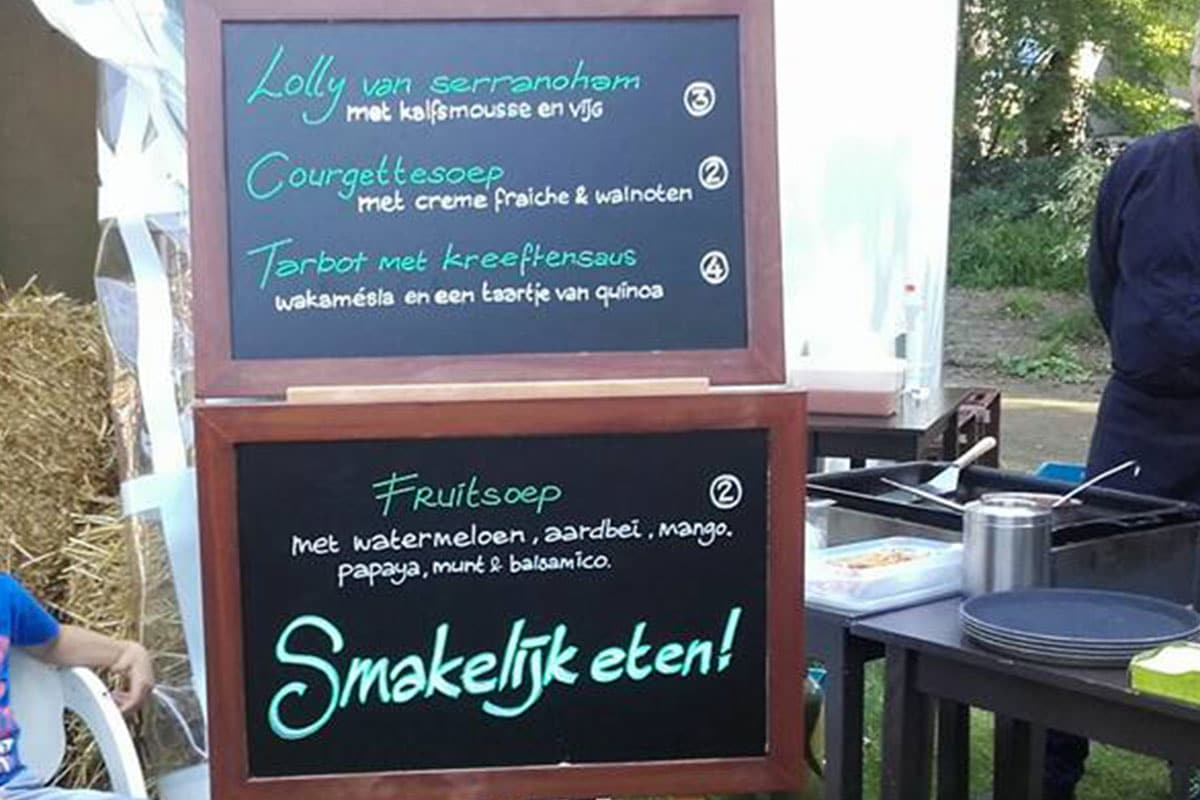 Lolly van serranoham
met kalfsmousse en vijg
3
Courgettesoep
2
met creme fraiche & walnoten
Tarbot met kreeftensaus
4
wakamésla en een taartje van quinoa
Fruitsoep
2
met watermeloen, aardbei, mango,
papaya, munt & balsamico.
Smakelijk eten!